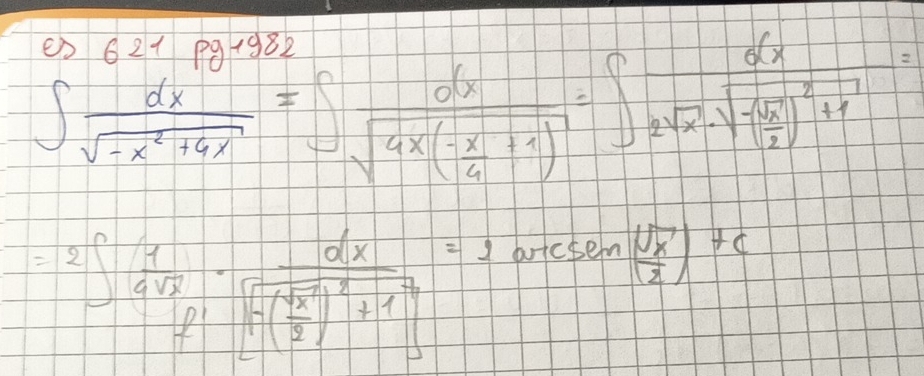 es 621 pg 1982
∫ dx / √(-x² + 4x) = ∫ dx / √(4x(-x/4 + 1)) = ∫ dx / (2√x · √(-(√x/2)² + 1)) =
= 2 ∫ 1/(4√x) · dx / [√(-(√x/2)² + 1)] = 2 arcsen (√x/2) + c
f'